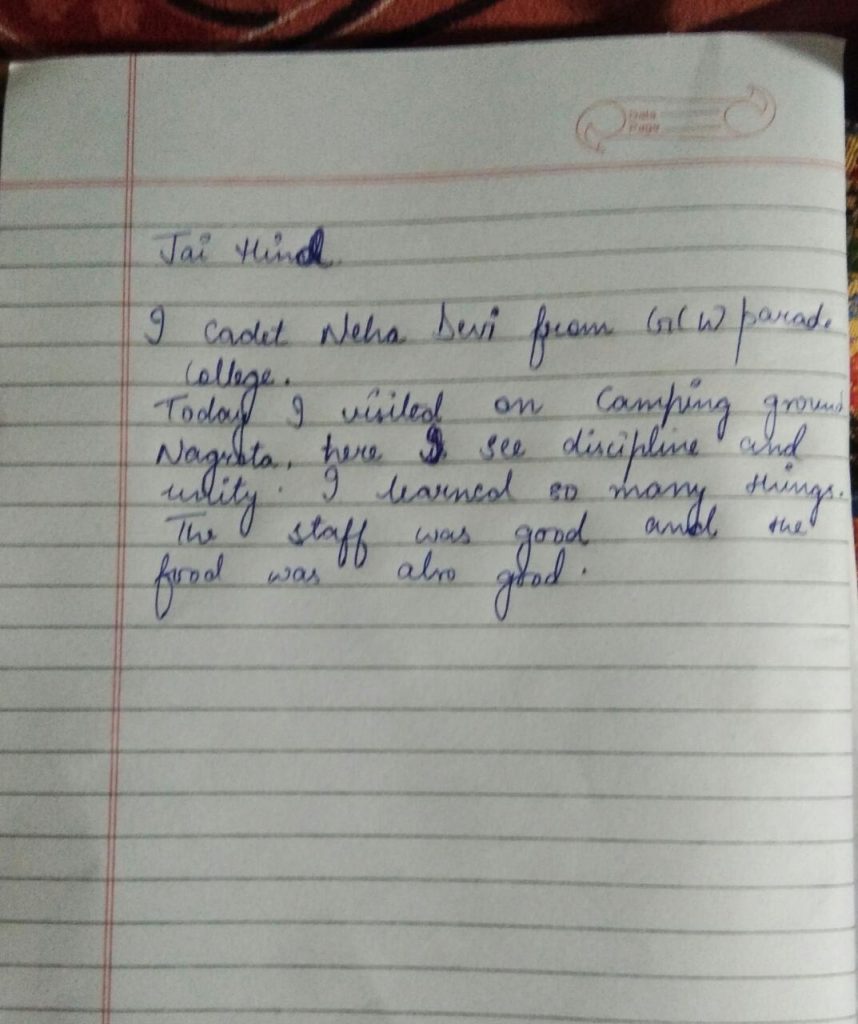 Date
Page
Jai Hind
I cadet Neha Devi from GCW parade
college.
Today I visited on Camping ground
Nagrota, here I see discipline and
unity. I learned so many things.
The staff was good and the
food was also good.